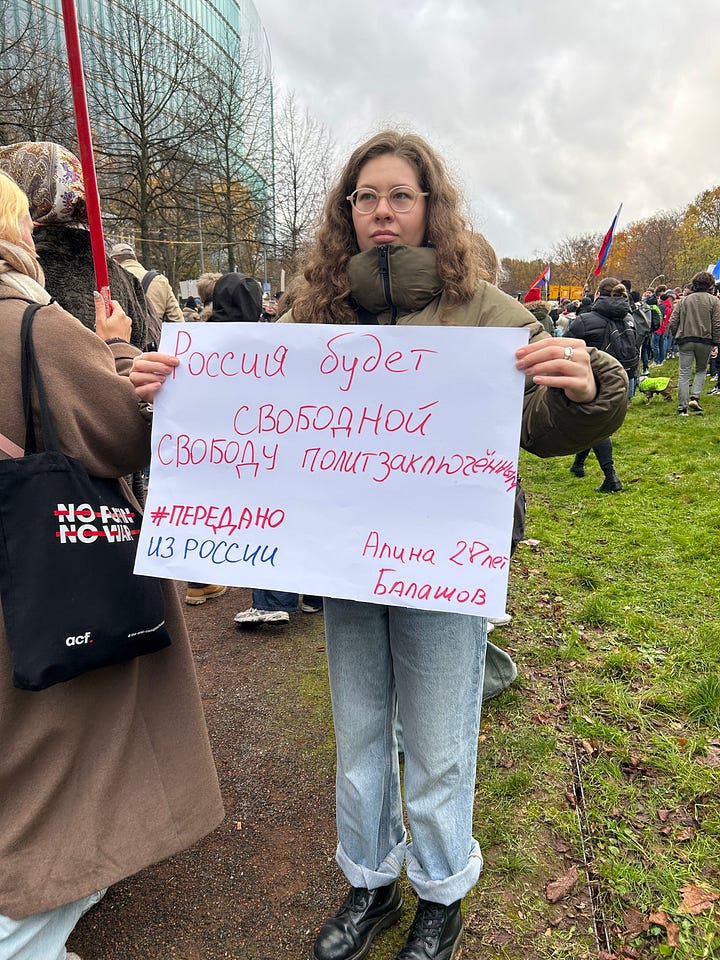 Россия будет
свободной
свободу политзаключённым
#ПЕРЕДАНО
ИЗ РОССИИ
Алина 28 лет
Балашов
NO PUTIN
NO WAR
acf.